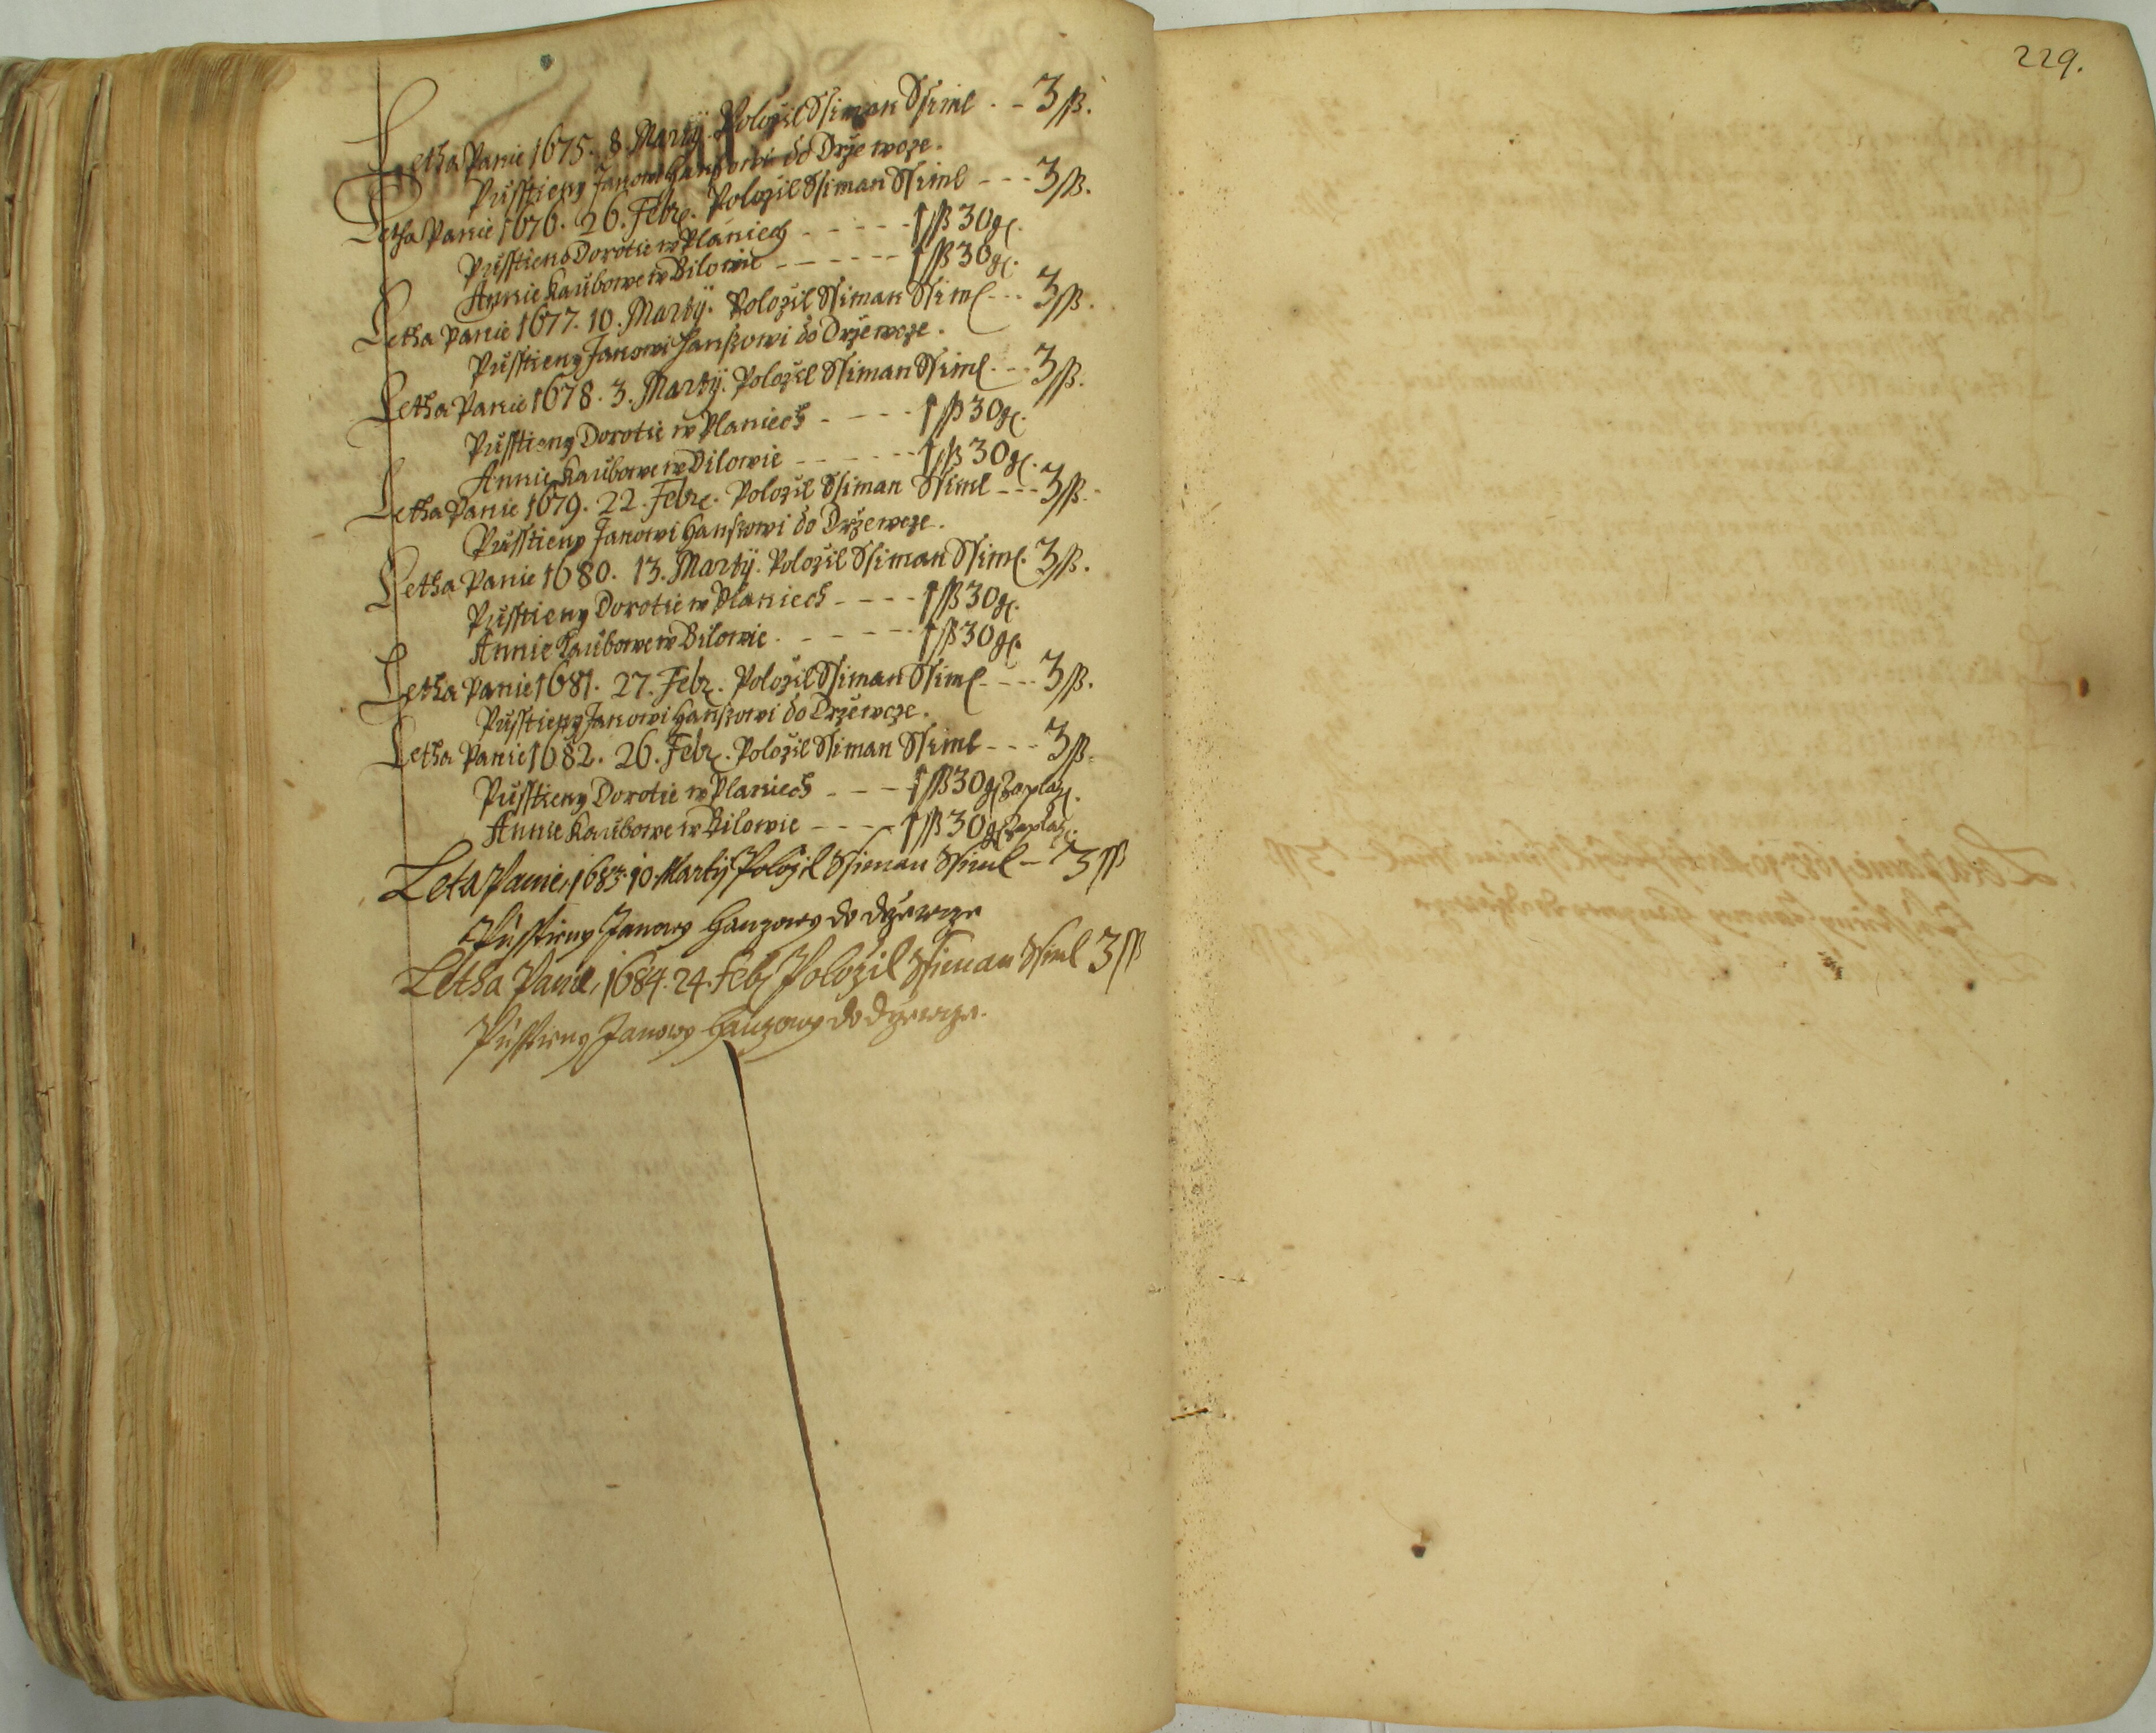 Letha Panie 1675. 8. Martÿ. Polozil Ssiman Ssiml - - 3 ß.
Pusstieny Janowi Hanzowi do Drzewcze.
Letha Panie 1676. 26. Febr. Polozil Ssiman Ssiml - - - 3 ß.
Pusstieno Dorotie w Planiech - - - - - 1 ß 30 g.
Annie Kaubowe w Bilowie - - - - - - 1 ß 30 g.
Letha Panie 1677. 10. Martÿ. Polozil Ssiman Ssiml - - - 3 ß.
Pusstieny Janowi Hanzowi do Drzewcze.
Letha Panie 1678. 3. Martÿ. Polozil Ssiman Ssiml - - - 3 ß.
Pusstieny Dorotie w Planiech - - - - 1 ß 30 g.
Annie Kaubowe w Bilowie - - - - - - 1 ß 30 g.
Letha Panie 1679. 22. Febr. Polozil Ssiman Ssiml - - - 3 ß.
Pusstieny Janowi Hanzowi do Drzewcze.
Letha Panie 1680. 13. Martÿ. Polozil Ssiman Ssiml. 3 ß.
Pusstieny Dorotie w Planiech - - - - 1 ß 30 g.
Annie Kaubowe w Bilowie. - - - - - 1 ß 30 g.
Letha Panie 1681. 27. Febr. Polozil Ssiman Ssiml - - - - 3 ß.
Pusstieny Janowi Hanzowi do Drzewcze.
Letha Panie 1682. 26. Febr. Polozil Ssiman Ssiml - - - 3 ß.
Pusstieny Dorotie w Planiech - - - 1 ß 30 g Zaplaz.
Annie Kaubowe w Bilowie - - - - 1 ß 30 g Zaplaz.
Leta Panie, 1683. 10. Martij Polozil Ssiman Ssiml - 3 ß
Pusstieny Janowy Hanzowy do drzewcze
Letha Panie, 1684. 24. Feb Polozil Ssiman Ssiml 3 ß
Pusstieny Janowy Hanzowy do drzewcze.
229.